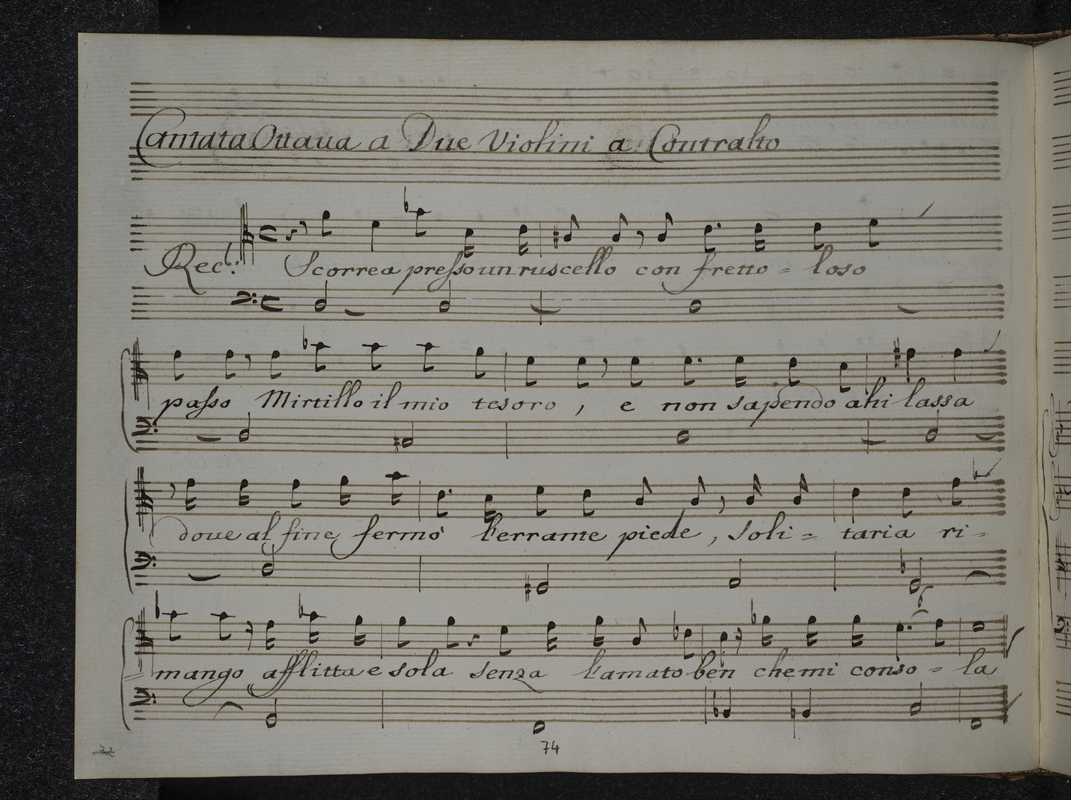 Cantata Ottaua a Due Violini a Contralto
Rec.t: Scorrea presso un ruscello con fretto = loso
passo Mirtillo il mio tesoro, e non sapendo ahi lassa
doue al fine fermò l'errante piede, soli = taria ri -
mango afflitta e sola senza l'amato ben che mi conso = la
74